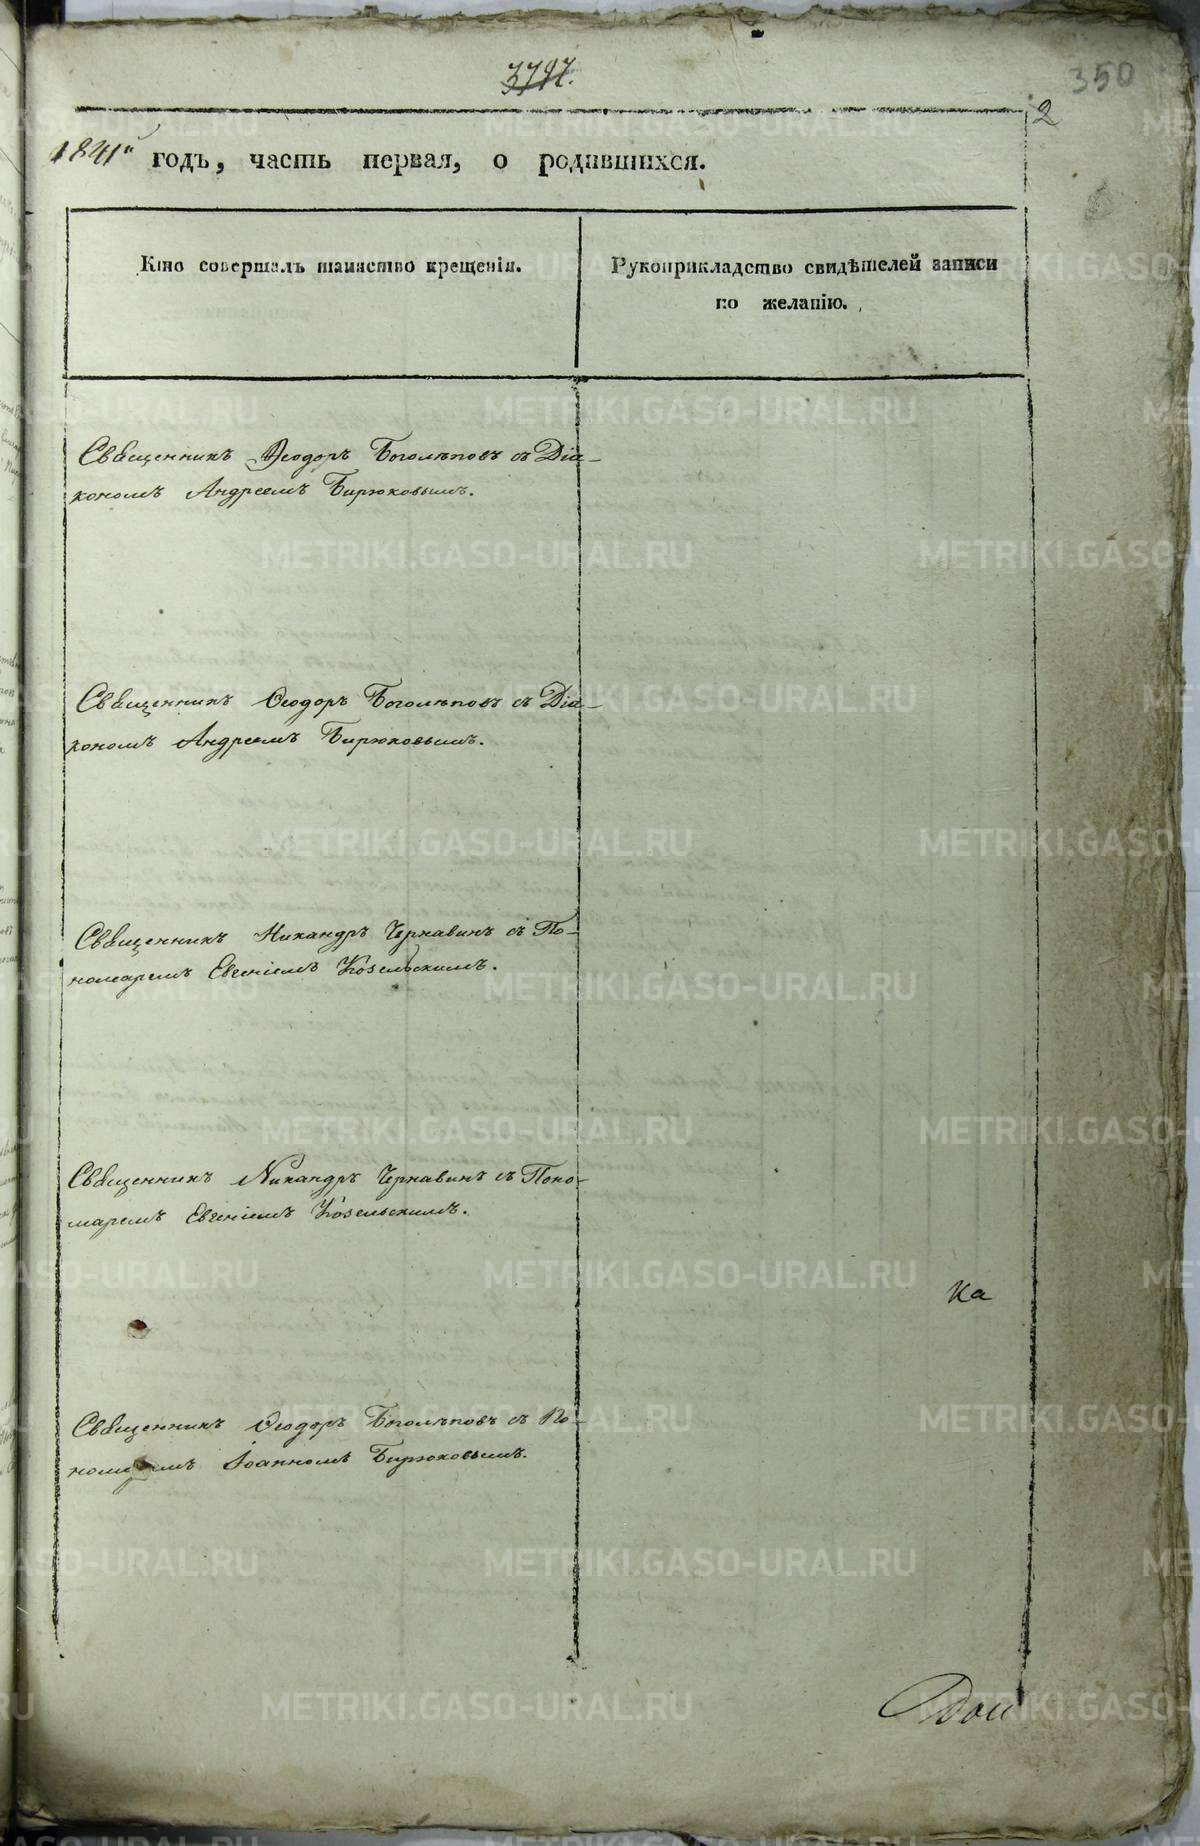 3797.
350
2
1841й годъ, часть первая, о родившихся.
Кто совершалъ таинство крещенія.
Рукоприкладство свидѣтелей записи
по желанію.
Священникъ Ѳеодоръ Боголѣповъ съ Діа-
кономъ Андреемъ Бирюковымъ.
Священникъ Ѳеодоръ Боголѣповъ съ Діа-
кономъ Андреемъ Бирюковымъ.
Священникъ Никандръ Чернавинъ съ По-
номаремъ Евгеніемъ Козельскимъ.
Священникъ Никандръ Чернавинъ съ Поно-
маремъ Евгеніемъ Козельскимъ.
Ка
Священникъ Ѳеодоръ Боголѣповъ съ По-
номаремъ Іоанномъ Бирюковымъ.
METRIKI.GASO-URAL.RU